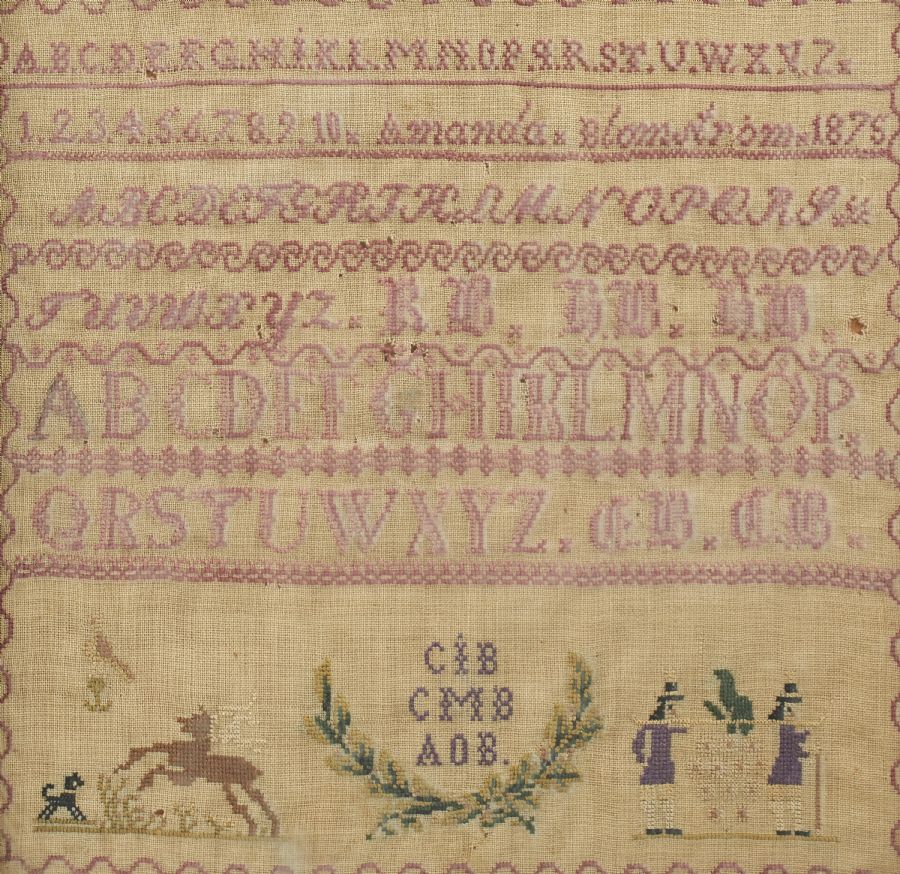 A.B.C.D.E.F.G.H.I.K.L.M.N.O.P.Q.R.S.T.U.W.X.Y.Z.
1.2.3.4.5.6.7.8.9.10. Amanda. Blomström. 1875
ABCDEFGHIKLMNOPQRS
TUVWXYZ. K.B. H.B. H.B.
ABCDEFGHIKLMNOP.
QRSTUWXYZ. E.B. C.B.
CIB
CMB
AOB.